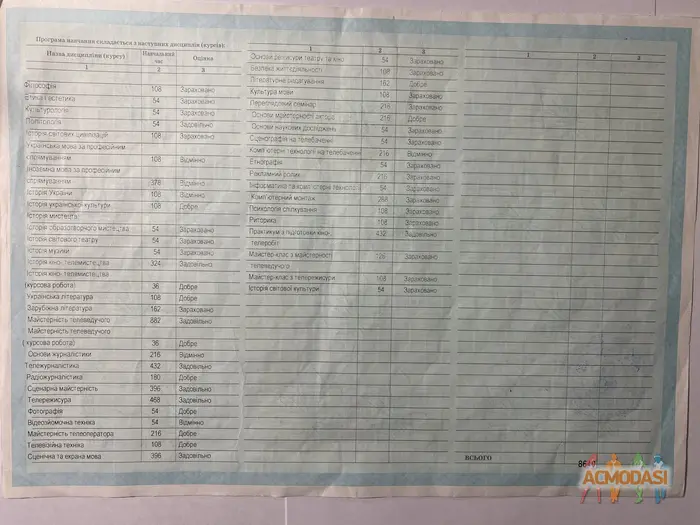 Програма навчання складається з наступних дисциплін (курсів):
Назва дисципліни (курсу) Навчальний час Оцінка
1 2 3
Філософія 108 Зараховано
Етика і естетика 54 Зараховано
Культурологія 54 Зараховано
Політологія 54 Задовільно
Історія світових цивілізацій 108 Зараховано
Українська мова за професійним
спрямуванням 108 Відмінно
Іноземна мова за професійним
спрямуванням 378 Відмінно
Історія України 108 Відмінно
Історія української культури 108 Добре
Історія мистецтв:
Історія образотворчого мистецтва 54 Зараховано
Історія світового театру 54 Зараховано
Історія музики 54 Зараховано
Історія кіно-,телемистецтва 324 Задовільно
Історія кіно-,телемистецтва
(курсова робота) 36 Добре
Українська література 108 Добре
Зарубіжна література 162 Зараховано
Майстерність телеведучого 882 Задовільно
Майстерність телеведучого
( курсова робота) 36 Добре
Основи журналістики 216 Відмінно
Тележурналістика 432 Задовільно
Радіожурналістика 180 Добре
Сценарна майстерність 396 Задовільно
Телережисура 468 Задовільно
Фотографія 54 Добре
Відеозйомочна техніка 54 Відмінно
Майстерність телеоператора 216 Добре
Телевізійна техніка 108 Добре
Сценічна та екрана мова 396 Задовільно
1 2 3
Основи режисури театру та кіно 54 Зараховано
Безпека життєдіяльності 108 Зараховано
Літературне редагування 162 Добре
Культура мови 108 Зараховано
Перекладний семінар 216 Зараховано
Основи майстерності актора 216 Добре
Основи наукових досліджень 54 Зараховано
Сценографія на телебаченні 54 Зараховано
Комп'ютерні технології на телебаченні 216 Відмінно
Етнографія 54 Зараховано
Рекламний ролик 216 Зараховано
Інформатика та комп'ютерні технології 54 Зараховано
Комп'ютерний монтаж 288 Зараховано
Психологія спілкування 108 Зараховано
Риторика 108 Зараховано
Практикум з підготовки кіно-, 432 Задовільно
телеробіт
Майстер-клас з майстерності 126 Зараховано
телеведучого
Майстер-клас з телережисури 108 Зараховано
Історія світової культури 54 Зараховано
1 2 3
ВСЬОГО
ACMODASI